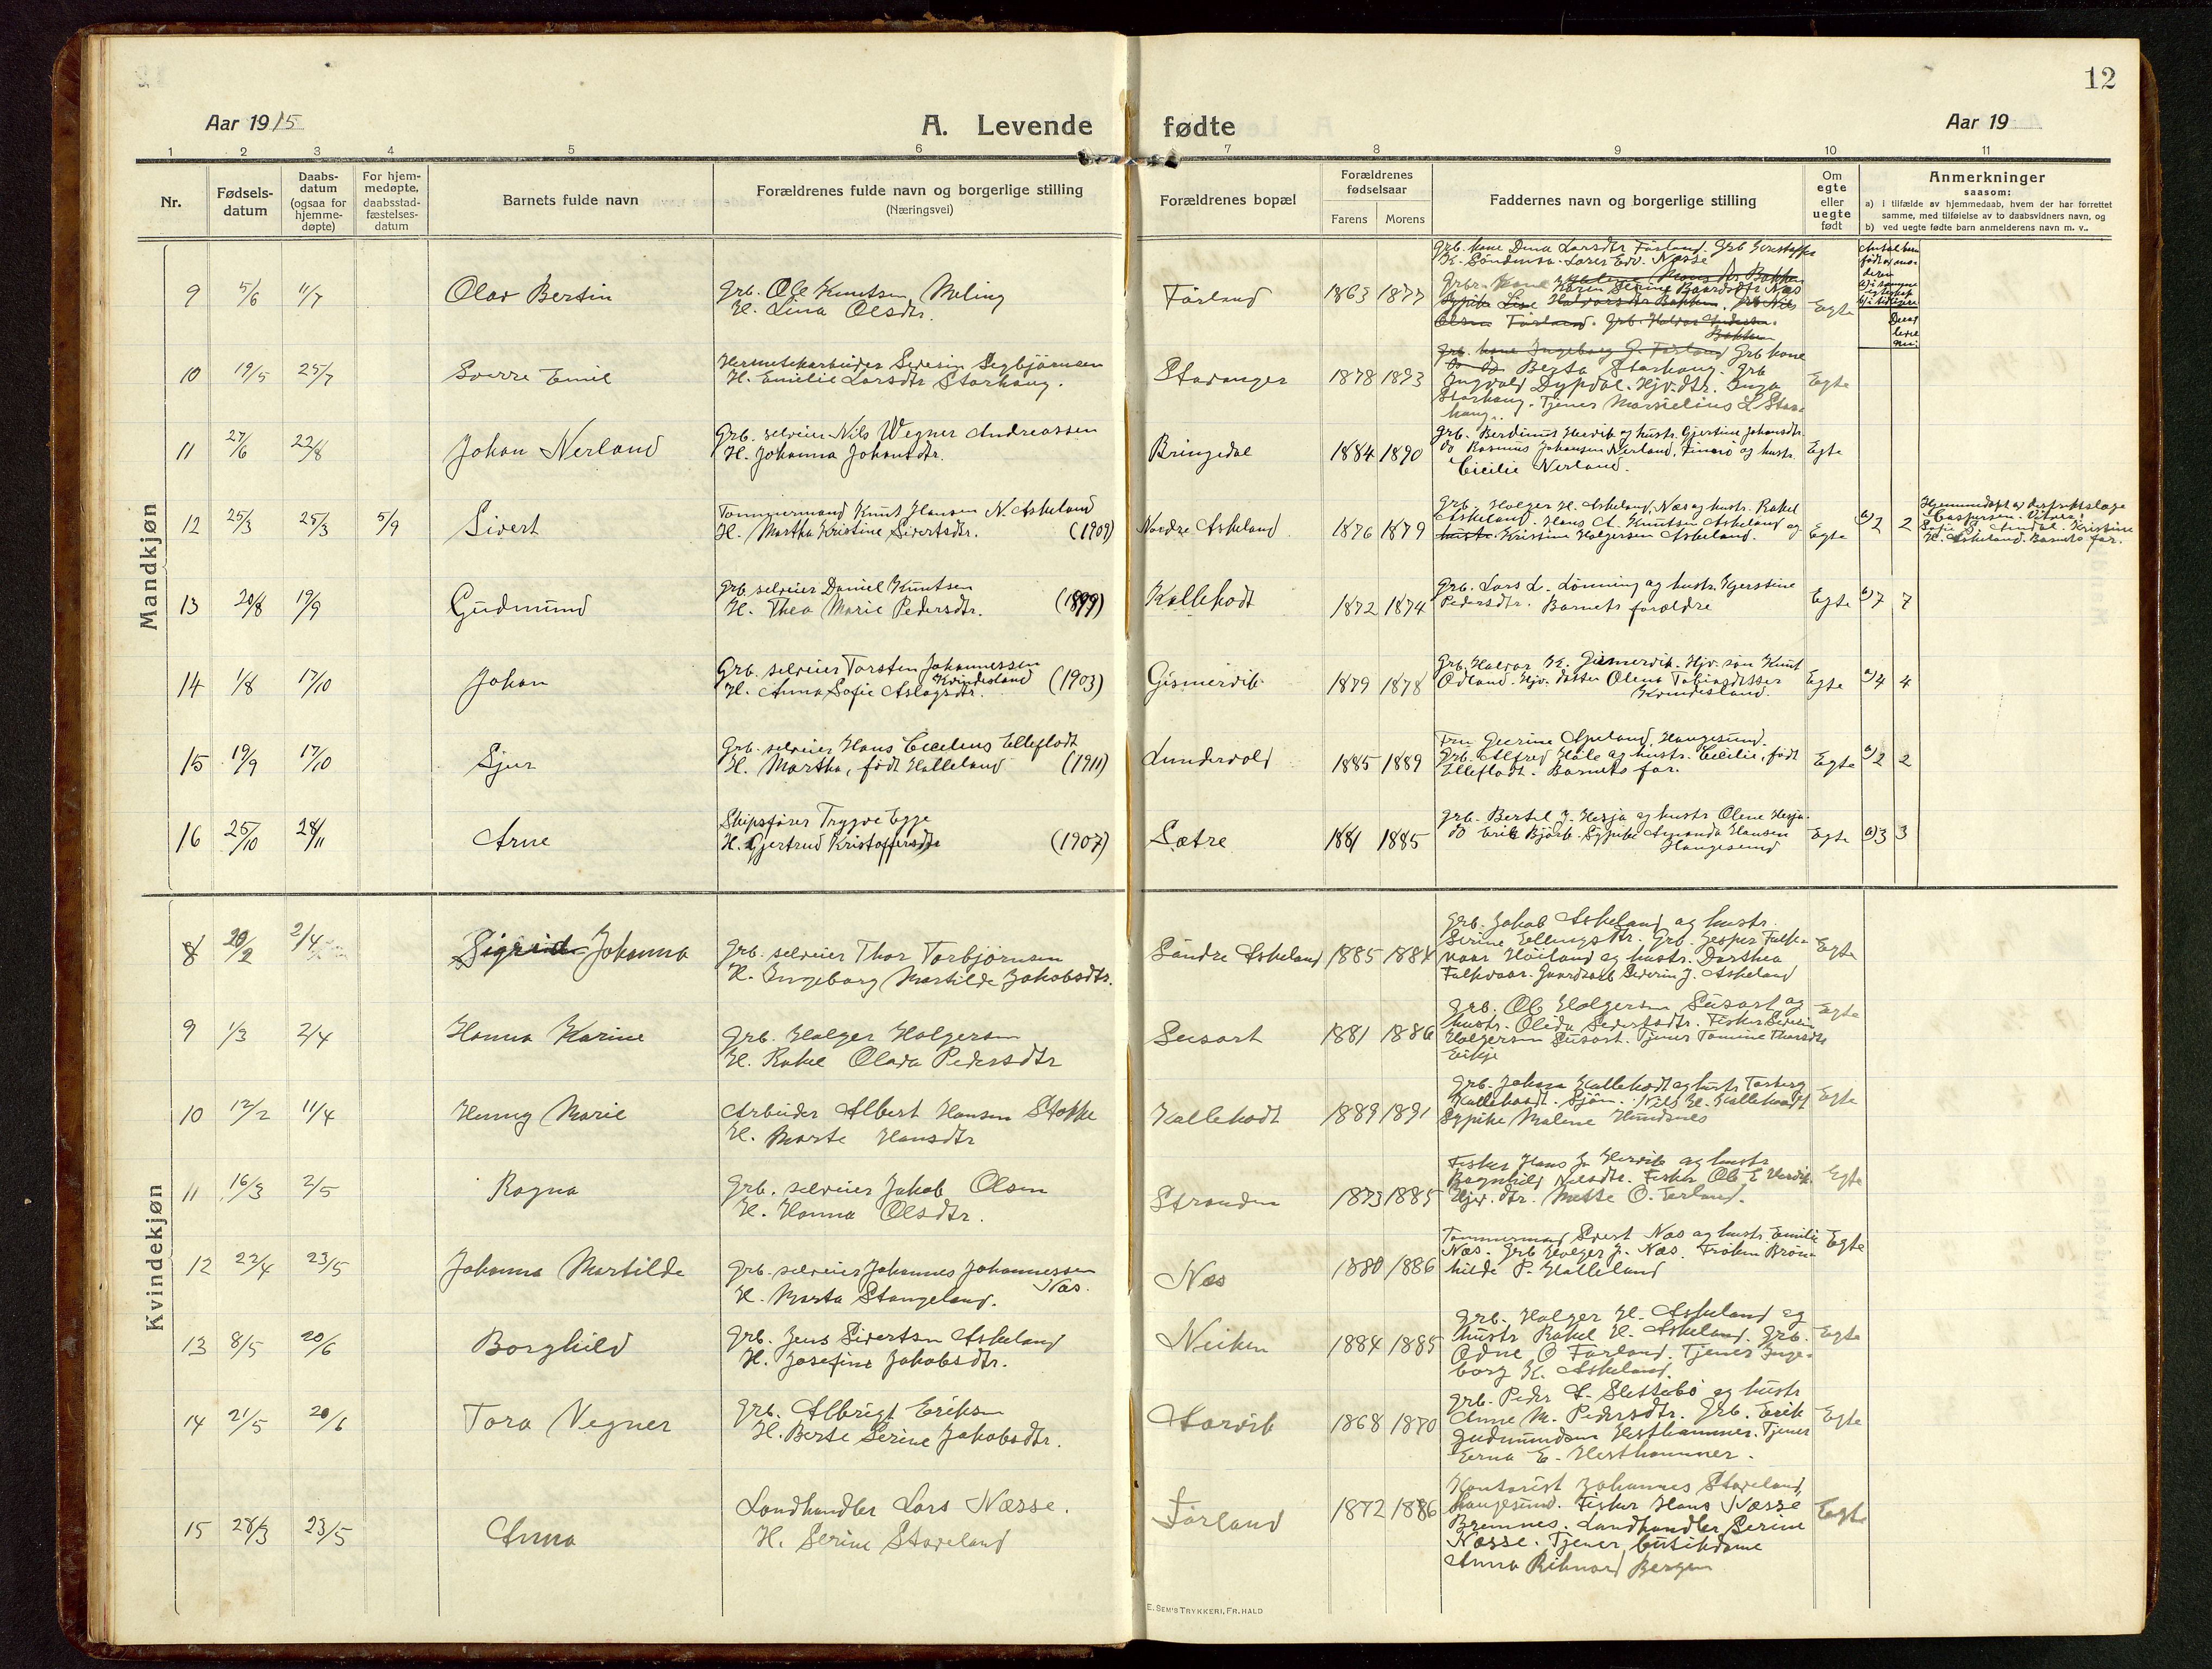 12
Aar 1915
A. Levende
fødte
Aar 19
1 2 3 4 5 6 7 8 9 10 11
Nr.
Fødsels-
datum
Daabs-
datum
(ogsaa for
hjemme-
døpte)
For hjem-
medøpte,
daabsstad-
fæstelses-
datum
Barnets fulde navn
Forældrenes fulde navn og borgerlige stilling
(Næringsvei)
Forældrenes bopæl
Forældrenes
fødselsaar
Farens Morens
Faddernes navn og borgerlige stilling
Om
egte
eller
uegte
født
Anmerkninger
saasom:
a) i tilfælde av hjemmedaab, hvem der har forrettet
samme, med tilføielse av to daabsvidners navn, og
b) ved uegte fødte barn anmelderens navn m. v..
Mandkjøn
9 5/6 11/7 Olav Bertin
Grb. Ole Knutsen Meling
H. Lina Olsdtr.
Førland 1863 1877
Grb. kone Dina Larsdtr Førland.
Egte
10 19/5 25/7 Sverre Emil
Hermetikarbeider Severin Sigbjørnsen
H. Emilie Larsdtr Storhaug.
Stavanger 1878 1893
Grb kone
Berta Storhaug. Grb
Ingvald Dypdal. Hjv. dtr. Inga
Storhaug. Tjener
Egte
11 27/6 22/8 Johan Nerland
Grb. selveier Nils Wegner Andreassen
H. Johanna Johansdtr.
Bringedal 1884 1890
og hustr. Gjertine Johansdtr.
do Rasmus Johansen Nerland, og hustr.
Cicilie Nerland.
Egte
12 25/3 25/3 5/9 Sivert
Tømmermand Knut Hansen N. Askeland
H. Martha Kristine Sivertsdtr. (1909)
Nordre Askeland 1876 1879
Grb. Holger H. Askeland, Næs og hustr. Rakel
Askeland. Hans A. Knutsen Askeland og
hustr. Kristine Holgersen Askeland.
Egte a) 2 2
Hjemmedøpt av distriktslæge
Kristine
H. Askeland. Barnets far.
13 20/8 19/9 Gudmund
Grb. selveier Daniel Knutsen
H. Thea Marie Pedersdtr. (1899)
Kallekodt 1872 1874
Grb. Lars L. Lønning og hustr. Kjerstine
Pedersdtr. Barnets forældre
Egte a) 7 7
14 1/8 17/10 Johan
Grb. selveier Torsten Johannessen
Kvindesland
H. Anna Sofie Aslagsdtr. (1903)
Gismervik 1879 1878
Grb. Halvor K. Gismervik. Hjv. søn Knut
Ødland. Hjv. datter Olena
Kvindesland.
Egte a) 4 4
15 19/9 17/10 Sjur
Grb. selveier Hans Cecelius Elleflodt
H. Martha, født Halleland (1911)
Lundervold 1885 1889
Fru Haugesund.
Grb. Alfred og hustr. Cecilie, født
Elleflodt. Barnets far.
Egte a) 2 2
16 25/10 28/11 Arne
Skipsfører Trygve Egge
H. Gjertrud Kristoffersdtr (1907)
Sætre 1881 1885
Grb. Bertel J. Hesja og hustr Olene Hesja.
do Erik Bjork. Sypike Amanda Hansen
Haugesund
Egte a) 3 3
Kvindekjøn
8 20/2 2/4 Sigrid Johanna
Grb. selveier Thor Torbjørnsen
H. Ingeborg Martilde Jakobsdtr.
Søndre Askeland 1885 1884
Grb. Jakob Askeland og hustr.
Serine Ellingsdtr. Grb. Jesper Falke-
naar Høiland og hustr. Dorthea
Falkvaar. Severin J. Askeland
Egte
9 1/3 2/4 Hanna Karine
Grb. Holger Holgersen
H. Rakel Olava Pedersdtr
Susort 1881 1886
Grb. Ole Holgersen Susort og
hustr. Fisker Severin
Holgersen Susort. Tjener Tomine Thorsdtr
Eikje
Egte
10 12/2 11/4 Henny Marie
Arbeider Albert Hansen Stokke
H. Marte Hansdtr
Kallekodt 1889 1891
Grb. Johan Kallekodt og hustr Torborg
Kallekodt. Sjøm. Nils H. Kallekodt
Sypike Malene Hundsnes
Egte
11 16/3 2/5 Ragna
Grb. selveier Jakob Olsen
H. Hanna Olsdtr.
Stranden 1873 1885
Fisker Hans J. Hervik og hustr
Ragnhild Nilsdtr. Fisker Ole E Hervik.
Hjv. dtr. Mette O. Førland.
Egte
12 22/4 23/5 Johanna Martilde
Grb. selveier Johannes Johannessen
Næs.
H. Marta Stangeland.
Næs 1880 1886
Tømmermand Sivert Næs og hustr. Emilie
Næs. Grb Holger J. Næs. Frøken Bryn-
hilde P. Halleland
Egte
13 8/5 20/6 Borghild
Grb. Jens Sivertsen Askeland
H. Josefine Jakobsdtr.
Neiken 1884 1885
Grb. Holger H. Askeland og
hustr Rakel H. Askeland. Grb.
Odne O Førland. Tjener Inge-
borg K. Askeland.
Egte
14 21/5 20/6 Tora Vegner
Grb. Albrigt Eriksen
H. Berte Serine Jakobsdtr.
Aarvik 1868 1870
Grb. Peder L. Slettebø og hustr
Anne M. Pedersdtr. Grb. Erik
Gudmundsen Hesthammer. Tjener
Erna E. Hesthammer.
Egte
15 28/3 23/5 Anna
Landhandler Lars Næsse.
H. Serine Staveland
Førland 1872 1886
Kontorist Johannes Staveland,
Haugesund. Fisker Hans Næsse
Bremnes. Landhandler Serine
Næsse. Tjener, butikdame
Anna Bergen
Egte
E. SEM'S TRYKKERI, FR.HALD